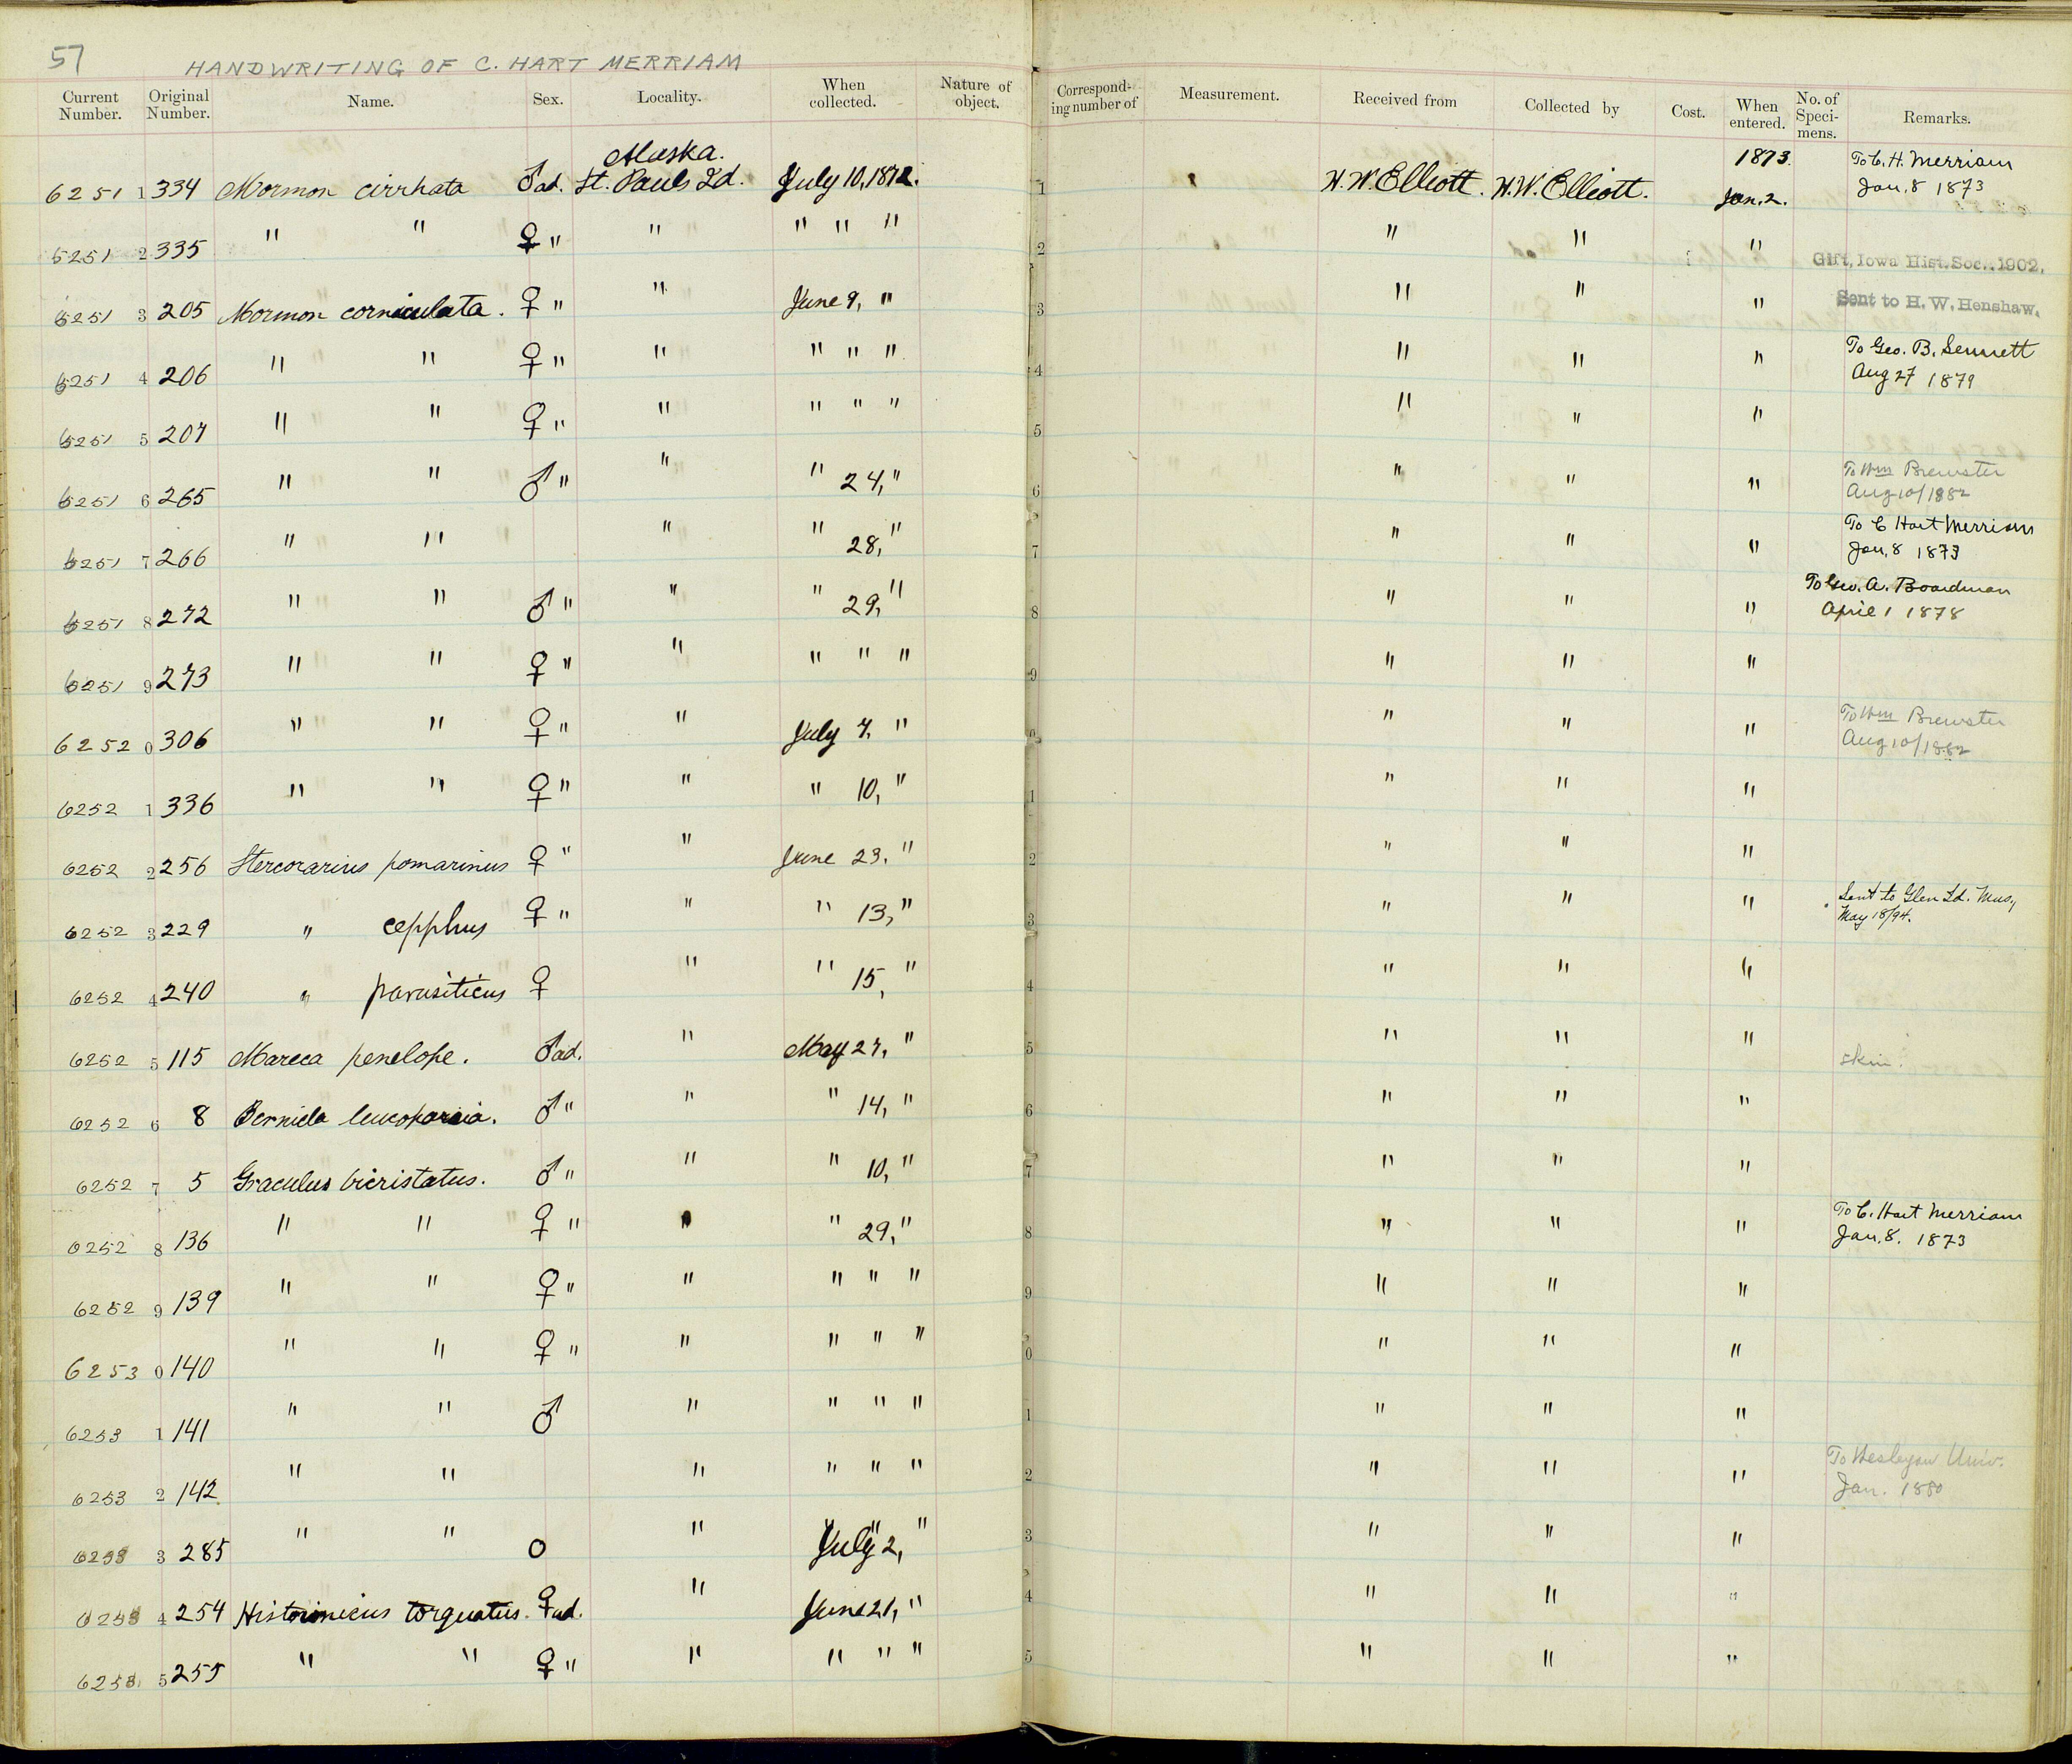 57 HANDWRITING OF C. HART MERRIAM
Current Number. Original Number. Name. Sex. Locality. When collected. Nature of object. Correspond-ing number of Measurement. Received from Collected by Cost. When entered. No. of Speci-mens. Remarks.
Alaska. 1873. To C. H. Merriam
6251 1 334 Mormon cirrhata ♂ ad. St. Pauls Id. July 10, 1872. 1 H. W. Elliott. H. W. Elliott. Jan. 2. Jan, 8 1873
6251 2 335 " " ♀ " " " " " 2 " " " Gift, Iowa Hist. Soc., 1902.
6251 3 205 Mormon corniculata. ♀ " " June 9, " 3 " " " Sent to H. W. Henshaw.
6251 4 206 " " ♀ " " " " " 4 " " " To Geo. B. Sennett
Aug 27 1879
6251 5 207 " " ♀ " " " " " 5 " " "
6251 6 265 " " ♂ " " " 24, " 6 " " " To Wm Brewster
Aug 10/1882
6251 7 266 " " " " 28, " 7 " " " To C Hart Merriam
Jan, 8 1873
6251 8 272 " " ♂ " " " 29, " 8 " " " To Geo. A. Boardman
April 1 1878
6251 9 273 " " ♀ " " " " " 9 " " "
6252 0 306 " " ♀ " " July 7, " 0 " " " To Wm Brewster
Aug 10/1882
6252 1 336 " " ♀ " " " 10, " 1 " " "
6252 2 256 Stercorarius pomarinus ♀ " " June 23. " 2 " " "
6252 3 229 " cepphus ♀ " " " 13, " 3 " " " Sent to Glen Id. Mus,
May 18/94.
6252 4 240 " parasiticus ♀ " " 15, " 4 " " "
6252 5 115 Mareca penelope. ♂ ad. " May 27, " 5 " " " skin.
6252 6 8 Bernicla leucopareia. ♂ " " " 14, " 6 " " "
6252 7 5 Graculus bicristatus. ♂ " " " 10, " 7 " " "
6252 8 136 " " ♀ " " " 29, " 8 " " " To C. Hart Merriam
Jan, 8. 1873
6252 9 139 " " ♀ " " " " " 9 " " "
6253 0 140 " " ♀ " " " " " 0 " " "
6253 1 141 " " ♂ " " " " 1 " " "
6253 2 142 " " " " " " 2 " " " To Wesleyan Univ.
Jan. 1880
6253 3 285 " " O " July 2, " 3 " " "
6253 4 254 Histrionicus torquatus. ♀ ad. " June 21, " 4 " " "
6253 5 255 " " ♀ " " " " " 5 " " "